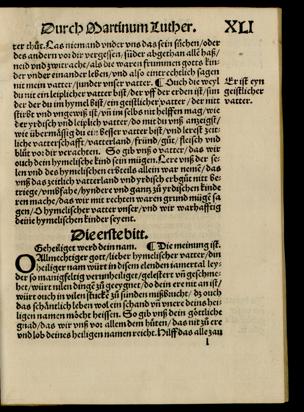 Durch Martinum Luther. XLI
rer thůt. Las niemand vnder vns das sein sůchen/oder
des andern vor dir vergessen/sunder abgethan alle haß/
neid vnd zwitracht/als die waren frummen gotts kin-
der vnder einander leben/vnd also eintrechtlich sagen
nit mein vatter/sunder vnser vatter. ¶ Ouch die weyl
du nit ein leiplicher vatter bist/der vff der erden ist/sun
der der du im hymel bist/ein geistlicher vatter/der nit
stirbt vnd ungewiß ist/vñ im selbs nit helffen mag/wie
der yrdisch vnd leiplich vatter/do mit du vnß anzeigst/
wie übermäsig du ein besser vatter bist/vnd lerest zeit-
liche vatterschafft/vatterland/fründ/gůt/fleisch vnd
blůt vor dir verachten. So gib vnß o vatter/das wir
ouch dein hymelische kind sein mügen. Lere vnß der se-
len vnd des hymelischen erbteils allein war neme/das
vnß das zeitlich vatterland vnd yrdisch erbgůt nit be-
triege/vmbfahe/hyndere vnd gantz zů yrdischen kinde
ren mache/das wir mit rechtem waren grund mügē sa-
gen/O hymelischer vatter vnser/vnd wir warhafftig
deine hymelischen kinder seyent.
Er ist eyn
geistlicher
vatter.
Die erste bitt.
Geheiliget werd dein nam. ¶ Die meinung ist.
O Allmechtiger gott/lieber hymelischer vatter/din
heiliger nam würt in disem elenden iamertal ley-
der so manigfeltig verunheiliget/gelestert vñ geschme-
het/würt vilen dingē zů geeygnet/do dein ere nit an ist/
würt ouch in vilen stuckē zů sünden mißbrucht/dz ouch
das schäntlich leben wol ein schand vñ vnere deins hei-
ligen namen möcht heissen. So gib vnß dein götliche
gnad/das wir vnß vor allem dem hůten/das nit zů ere
vnd lob deines heiligen namen reicht. Hilff das alle zau
l